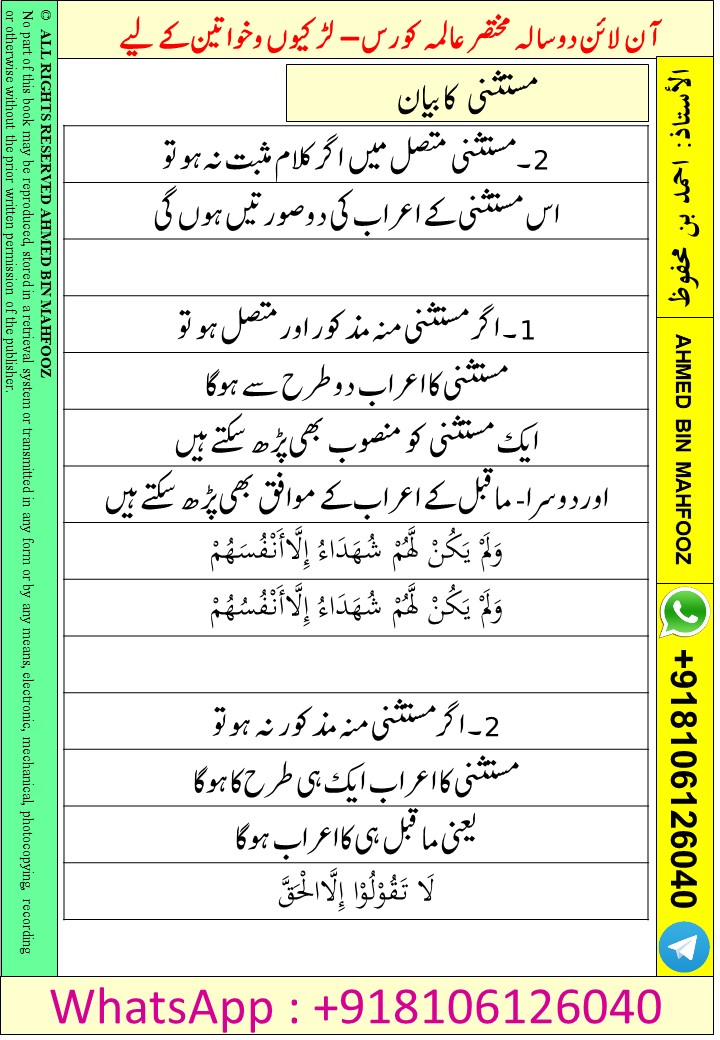 آن لائن دو سالہ مختصر عالمہ کورس – لڑکیوں و خواتین کے لیے
مستثنی کا بیان
2۔ مستثنی متصل میں اگر کلام مثبت نہ ہو تو
اس مستثنی کے اعراب کی دو صورتیں ہوں گی
1۔ اگر مستثنی منہ مذکور اور متصل ہو تو
مستثنی کا اعراب دو طرح سے ہوگا
ایک مستثنی کو منصوب بھی پڑھ سکتے ہیں
اور دوسرا - ماقبل کے اعراب کے موافق بھی پڑھ سکتے ہیں
وَلَمْ يَكُنْ لَّهُمْ شُهَدَاءُ إِلَّا أَنْفُسَهُمْ
وَلَمْ يَكُنْ لَّهُمْ شُهَدَاءُ إِلَّا أَنْفُسُهُمْ
2۔ اگر مستثنی منہ مذکور نہ ہو تو
مستثنی کا اعراب ایک ہی طرح کا ہوگا
یعنی ماقبل ہی کا اعراب ہوگا
لَا تَقُوْلُوْا إِلَّا الْحَقَّ
الأستاذ: احمد بن محفوظ
AHMED BIN MAHFOOZ
+918106126040
© ALL RIGHTS RESERVED AHMED BIN MAHFOOZ
No part of this book may be reproduced, stored in a retrieval system or transmitted in any form or by any means, electronic, mechanical, photocopying, recording
or otherwise without the prior written permission of the publisher.
WhatsApp : +918106126040